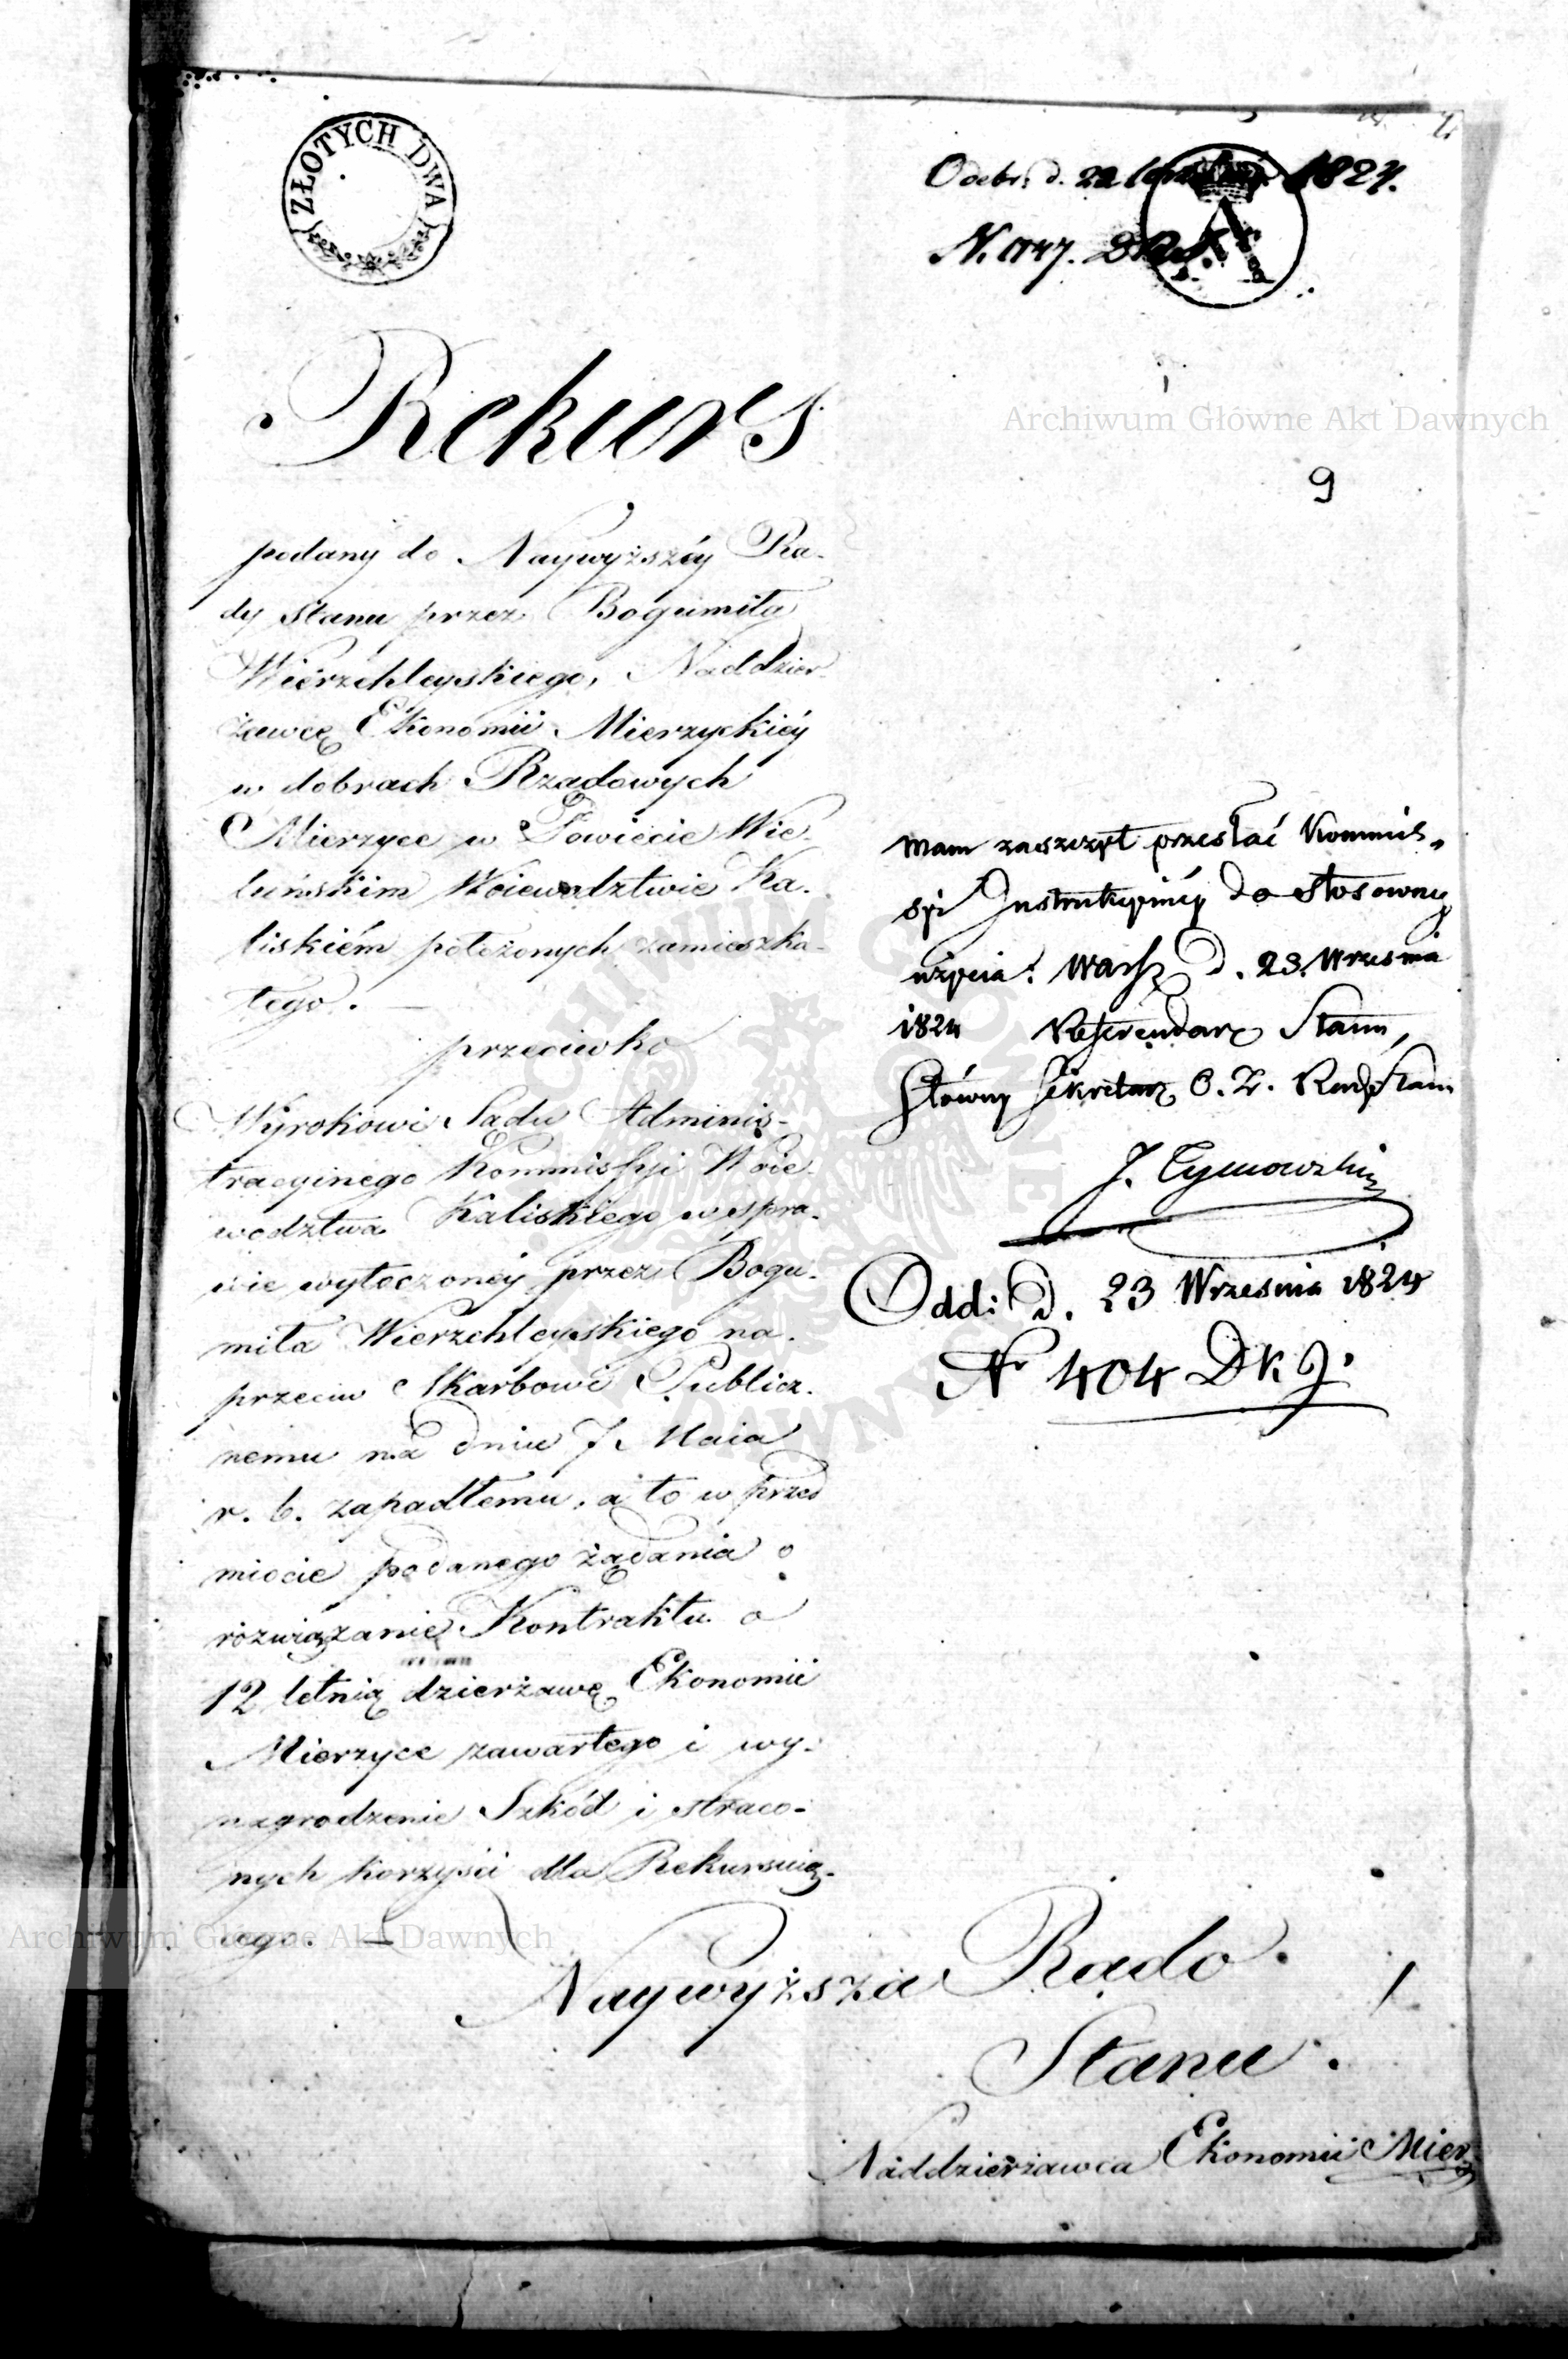 ZŁOTYCH DWA
Odebr. d. 22 1824.
N.
Archiwum Główne Akt Dawnych
9
Rekurs
podany do Naywyższéy Ra-
dy Stanu przez Bogumiła
Wierzchleyskiego, Naddzier-
żawcę Ekonomii Mierzyckiéy
w dobrach Rządowych
Mierzyce w Powiecie Wie-
luńskim Woiewództwie Ka-
liskiém położonych zamieszka-
łego. —
przeciwko
Wyrokowi Sądu Adminis-
tracyinego Kommissyi Woie-
wodztwa Kaliskiego w spra-
wie wytoczoney przez Bogu-
miła Wierzchleyskiego na-
przeciw Skarbowi Publicz-
nemu na dniu 7 Maia
r. b. zapadłemu, a to w przed
miocie podanego żądania o
rozwiązanie Kontraktu o
12 letnią dzierżawę Ekonomii
Mierzyce zawartego i wy-
nagrodzenie Szkód i straco-
nych korzyści dla Rekursuią-
cego. —
Mam zaszczyt przesłać Kommis-
syi Instrukcyiney do stosowney
użycia. Warsz d. 23. Września
1824 Referendarz Stanu,
Główny Sekretarz O. Z. Rady Stanu
J. Tymowski
Oddi: D. 23 Września 1824
Nr 404 DKJ.
Naywyższa Rado
Stanu!
Naddzierżawca Ekonomii Mier
Archiwum Główne Akt Dawnych
ARCHIWUM GŁÓWNE AKT DAWNYCH